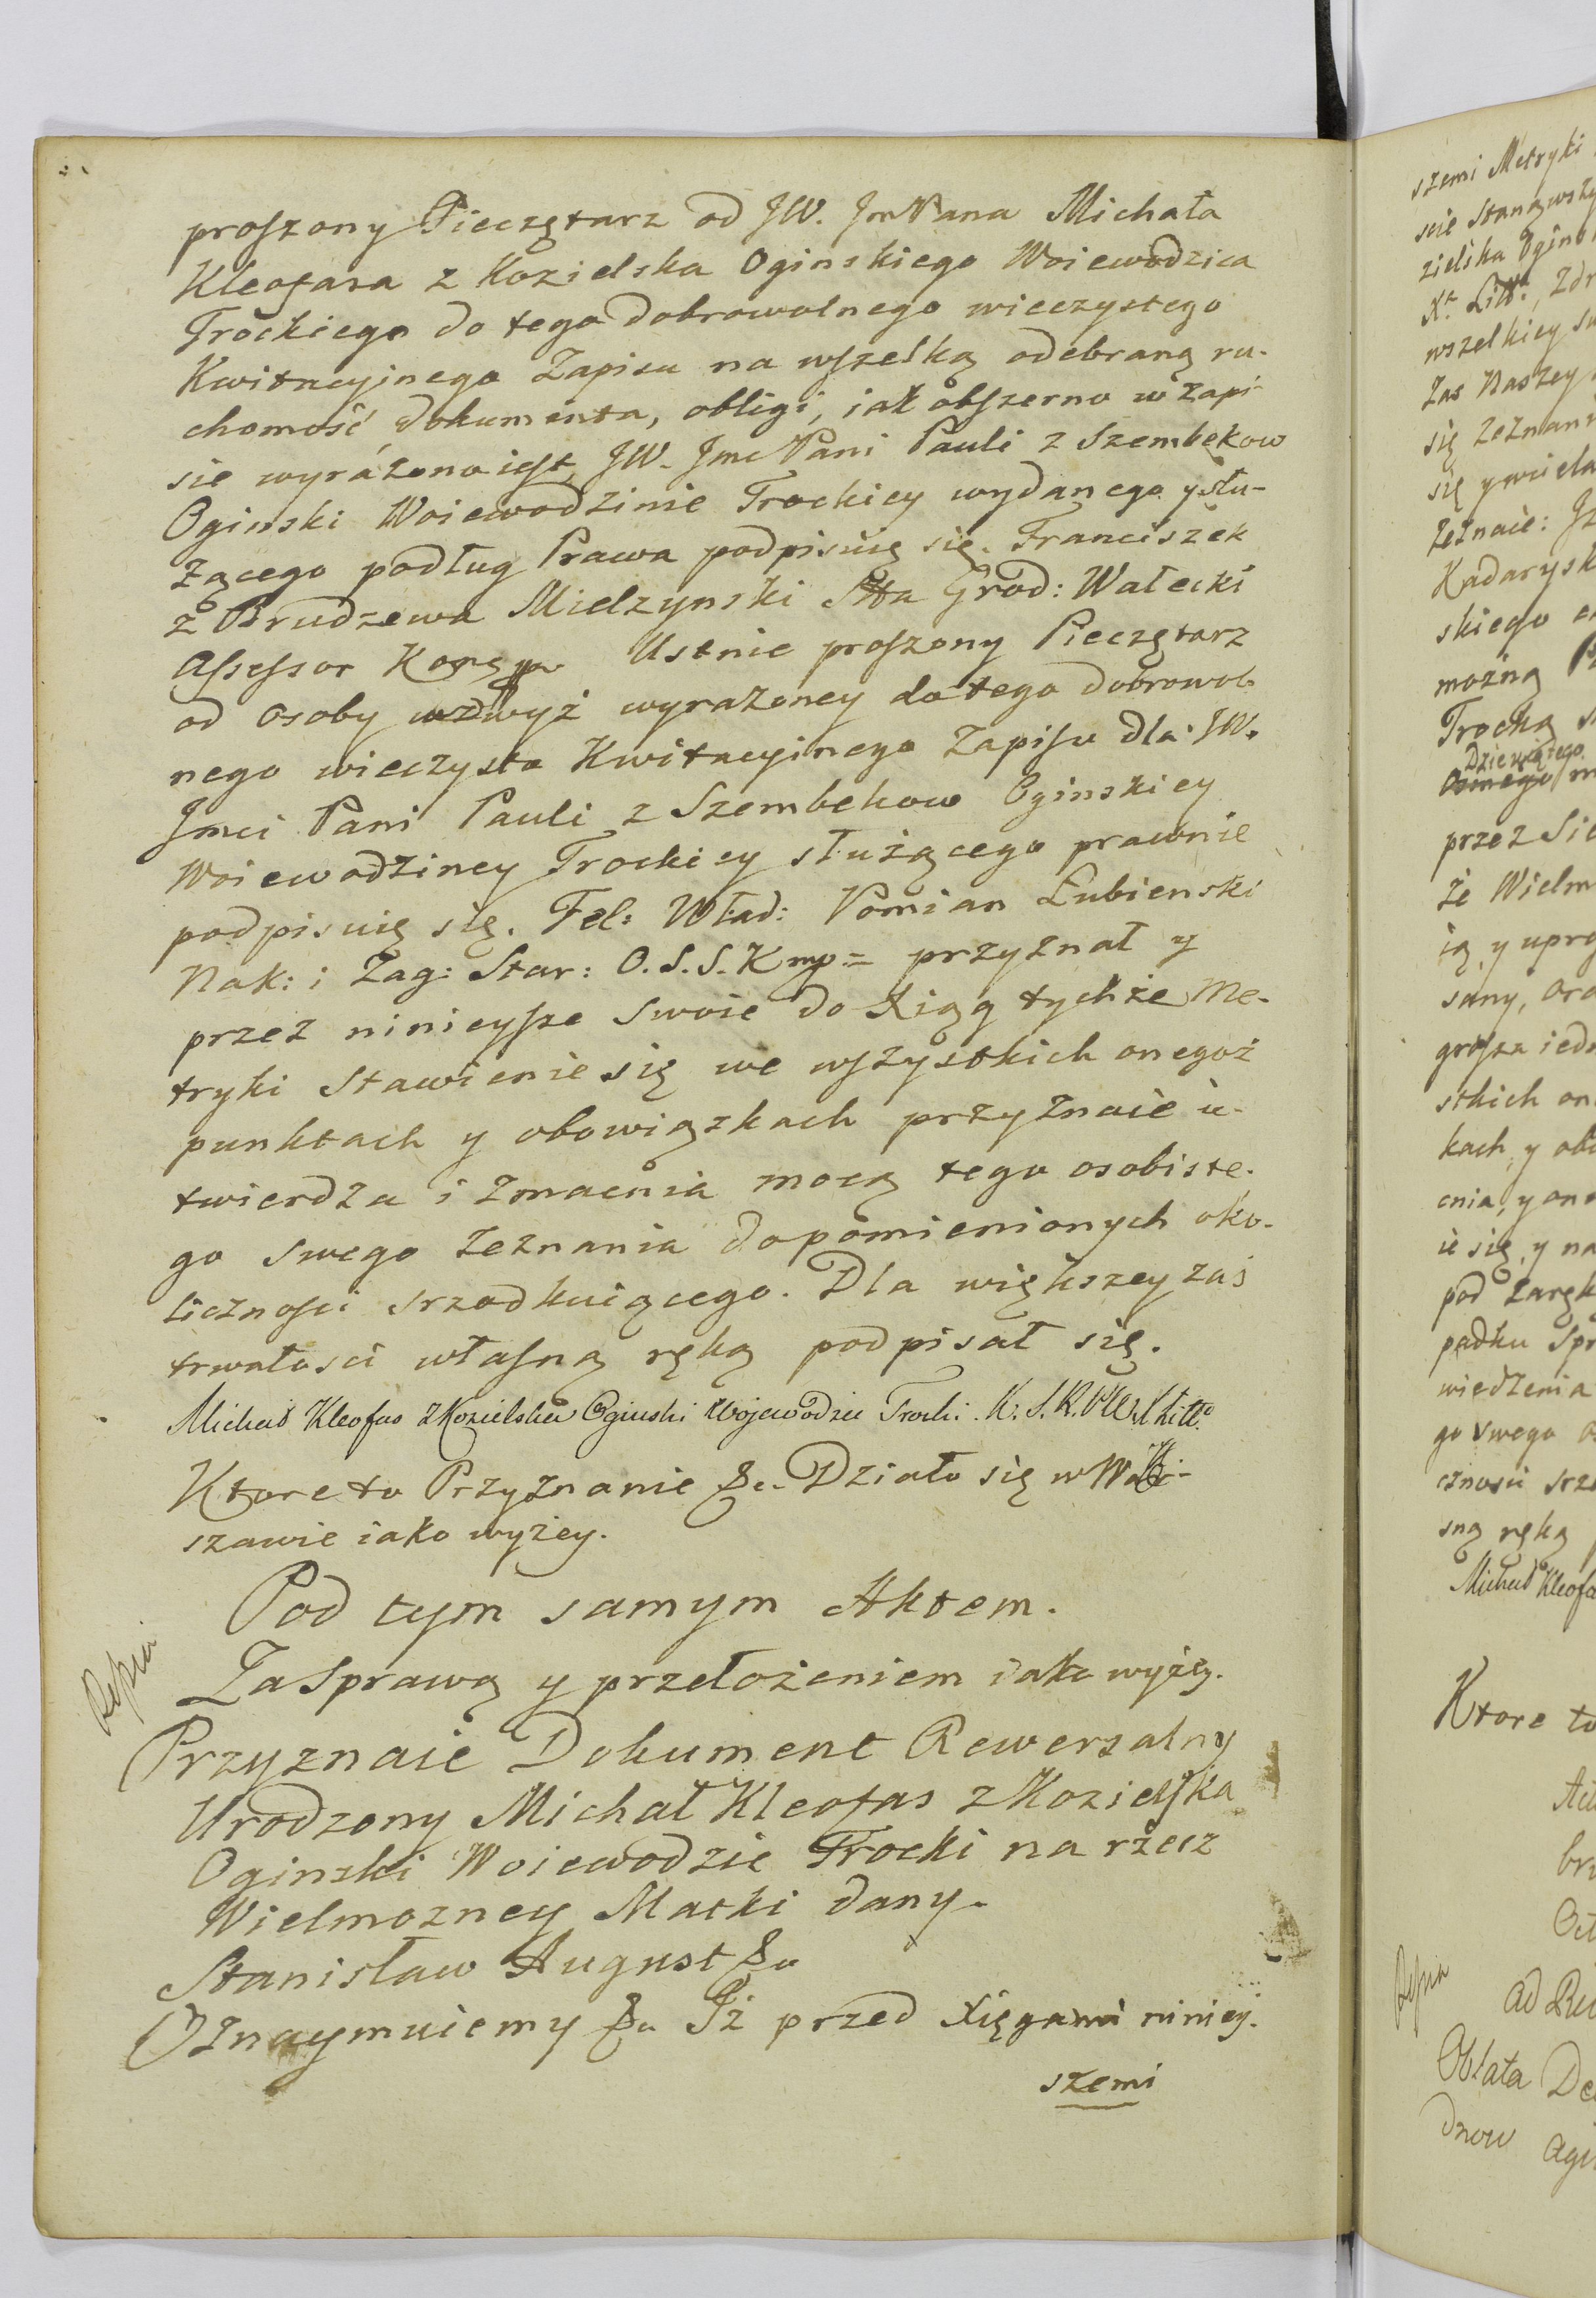 proszony Pieczętarz od JW. JmPana Michała
Kleofasa z Kozielska Oginskiego Woiewodzica
Trockiego do tego dobrowolnego wieczystego
Kwitacyjnego Zapisu na wszelką odebraną ru-
chomość, dokumenta, obligi, iak obszerno w Zapi-
sie wyrażono iest, JW. Jmc Pani Pauli z Szembekow
Oginski Woiewodzinie Trockiey wydanego y słu-
żącego podług Prawa podpisuię się. Franciszek
z Brudzewa Mielzynski Stta Grod: Wałecki
Assessor Ustnie proszony Pieczętarz
od osoby wzwyż wyrażoney do tego dobrowol-
nego wieczysto Kwitacyinego Zapisu dla JW.
Jmci Pani Pauli z Szembekow Oginskiey
Woiewodziney Trockiey służącego prawnie
podpisuię się. Fel: Wład: Pomian Łubienski
Nak: i Zag: Star: O. S. S. K mp = przyznał y
przez ninieysze swoie do Xiąg tychże Me-
tryki Stawienie się we wszystkich onegoż
punktach y obowiązkach przyznaie u-
twierdza i zmacnia mocą tego osobiste-
go swego zeznania dopomienionych oko-
liczności srzodkuiącego. Dla większey zaś
trwałosci własną ręką podpisał się.
Michał Kleofas z Kozielska Oginski Wojewodzic Trocki.
Ktore to Przyznanie &c. Działo się w War-
szawie iako wyżey.
Pod tym samym Aktem.
Za Sprawą y przełożeniem iako wyżey.
Przyznaie Dokument Rewersalny
Urodzony Michał Kleofas z Kozielska
Oginski Woiewodzic Trocki na rzecz
Wielmozney Matki dany.
Stanisław August &c
Oznaymuiemy &c Iż przed Xięgami niniey-
szemi
szemi Metryki
scie Stanąwszy
wszelkiey
Zas Naszey
się Zeznani
Zeznaie:
skiego
możną
Trocką
Dziewiątego
Osmego
przez Sie
że Wielm
ią, y upro
grosza iedn
stkich on
kach, y obo
cnia, y one
ie się, y na
pod Zaręk
padku Spr
wiedzenia
go swego
cznosci srzo
sną ręką
Michał Kleofa
Ktore to
Oblata De
dnow